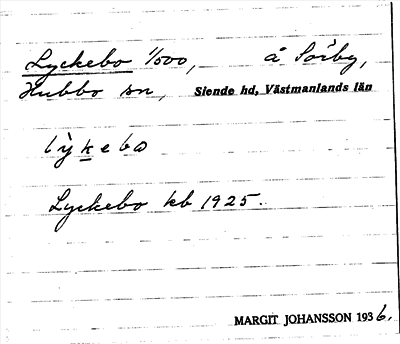 Lyckebo 1/500, å Sörby,
Hubbo sn, Siende hd, Västmanlands län
lỳkebω
Lyckebo kb 1925.
MARGIT JOHANSSON 1936.